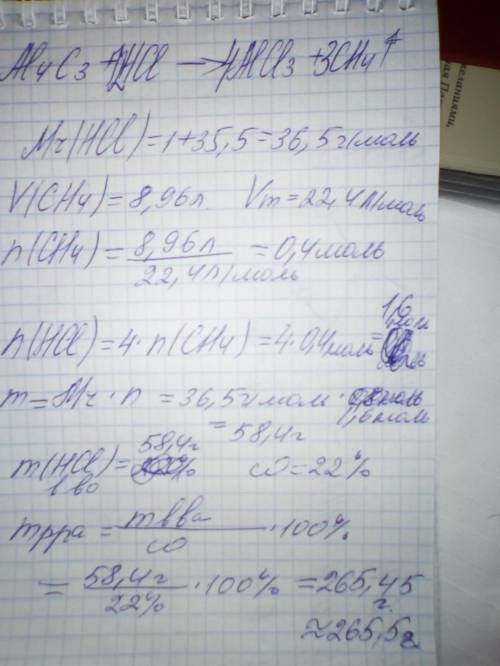 Al4C3 + 12HCl → 4AlCl3 + 3CH4↑
Mr(HCl) = 1 + 35,5 = 36,5 г/моль
V(CH4) = 8,96 л Vm = 22,4 л/моль
n(CH4) = 8,96 л / 22,4 л/моль = 0,4 моль
n(HCl) = 4 · n(CH4) = 4 · 0,4 моль = 1,6 моль
m = Mr · n = 36,5 г/моль · 1,6 моль
= 58,4 г
m(HCl) = 58,4 г ω = 22%
в-во
mр-ра = mв-ва / ω · 100%
= 58,4 г / 22% · 100% = 265,45 г
≈ 265,5 г
желаниями.